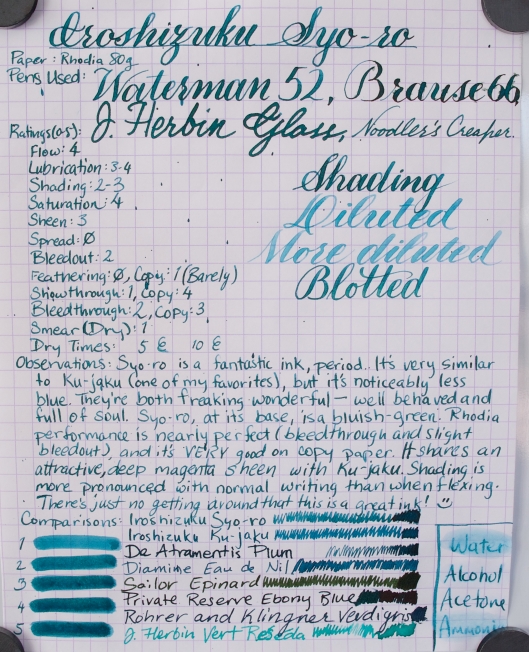 Iroshizuku Syo-ro
Paper: Rhodia 80g
Pens Used:
Waterman 52, Brause 66,
J. Herbin Glass, Noodler's Creaper.
Ratings (0-5):
Flow: 4
Lubrication: 3-4
Shading: 2-3
Saturation: 4
Sheen: 3
Spread: Ø
Bleedout: 2
Feathering: Ø, Copy: 1 (Barely)
Showthrough: 1, Copy: 4
Bleedthrough: 2, Copy: 3
Smear (Dry): 1
Dry Times: 5 € 10 €
Shading
Diluted
More diluted
Blotted
Observations: Syo-ro is a fantastic ink, period. It's very similar
to Ku-jaku (one of my favorites), but it's noticeably less
blue. They're both freaking wonderful — well behaved and
full of soul. Syo-ro, at its base, is a bluish-green. Rhodia
performance is nearly perfect (bleedthrough and slight
bleedout), and it's VERY good on copy paper. It shares an
attractive, deep magenta sheen with Ku-jaku. Shading is
more pronounced with normal writing than when flexing.
There's just no getting around that this is a great ink! :)
Comparisons: Iroshizuku Syo-ro
Iroshizuku Ku-jaku
De Atramentis Plum
Diamine Eau de Nil
Sailor Epinard
Private Reserve Ebony Blue
Rohrer and Klingner Verdigris
J. Herbin Vert Reseda
1
2
3
4
5
Water
Alcohol
Acetone
Ammonia